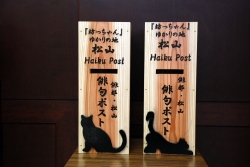 『坊っちゃん』
ゆかりの地
松山
Haiku Post
俳都・松山
俳句ポスト
『坊っちゃん』
ゆかりの地
松山
Haiku Post
俳都・松山
俳句ポスト